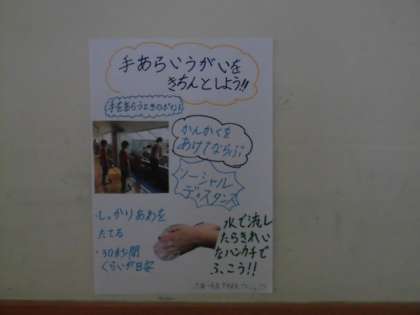 手あらいうがいを
きちんとしよう!!
手をあらうときのポイント
かんかくを
あけてならぶ
ソーシャル
ディスタンス
・しっかりあわを
たてる
・30秒間
くらいが目安
水で流し
たらきれい
なハンカチで
ふこう!!